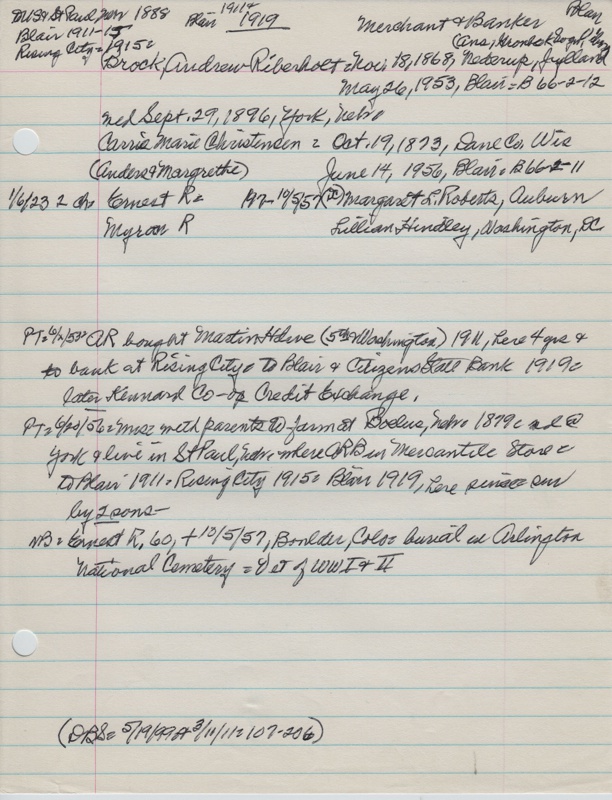 DUS & St Paul, Nebr 1888 1911 & Blair
Blair 1911-15 Blair 1919 Merchant & Banker
Rising City = 1915 = (Ans,
Brock, Andrew Riberholt = Nov. 18, 1868, Nederup, Jylland
May 26, 1953, Blair = B 66-2-12
md Sept. 29, 1896, York, Nebr
Carrie Marie Christensen = Oct. 19, 1873, Dane Co, Wis
(Anders & Margrethe) June 14, 1956, Blair = B 66-2-11
1/6/23 2 ch Ernest R = 10/5/57 Margaret L. Roberts, Auburn
Myron R Lillian Hindley, Washington, DC
PT = 6/2/53 = AR bought Martin H store (5th & Washington) 1911, here 4 yrs &
to bank at Rising City = to Blair & Citizens State Bank 1919 =
later Kennard Co-op Credit Exchange.
PT = 6/20/56 = Mrs = with parents to farm at Boelus, Nebr 1879 = md @
York & live in St Paul, Nebr = where ARB in Mercantile Store =
to Blair 1911 = Rising City 1915 = Blair 1919, here since = sur
by 2 sons -
NB = Ernest R, 60, + 10/5/57, Boulder, Colo = burial in Arlington
National Cemetery = Vet of WW I & II
(DBS = 5/19/99 & 3/11/11 = 107-206)